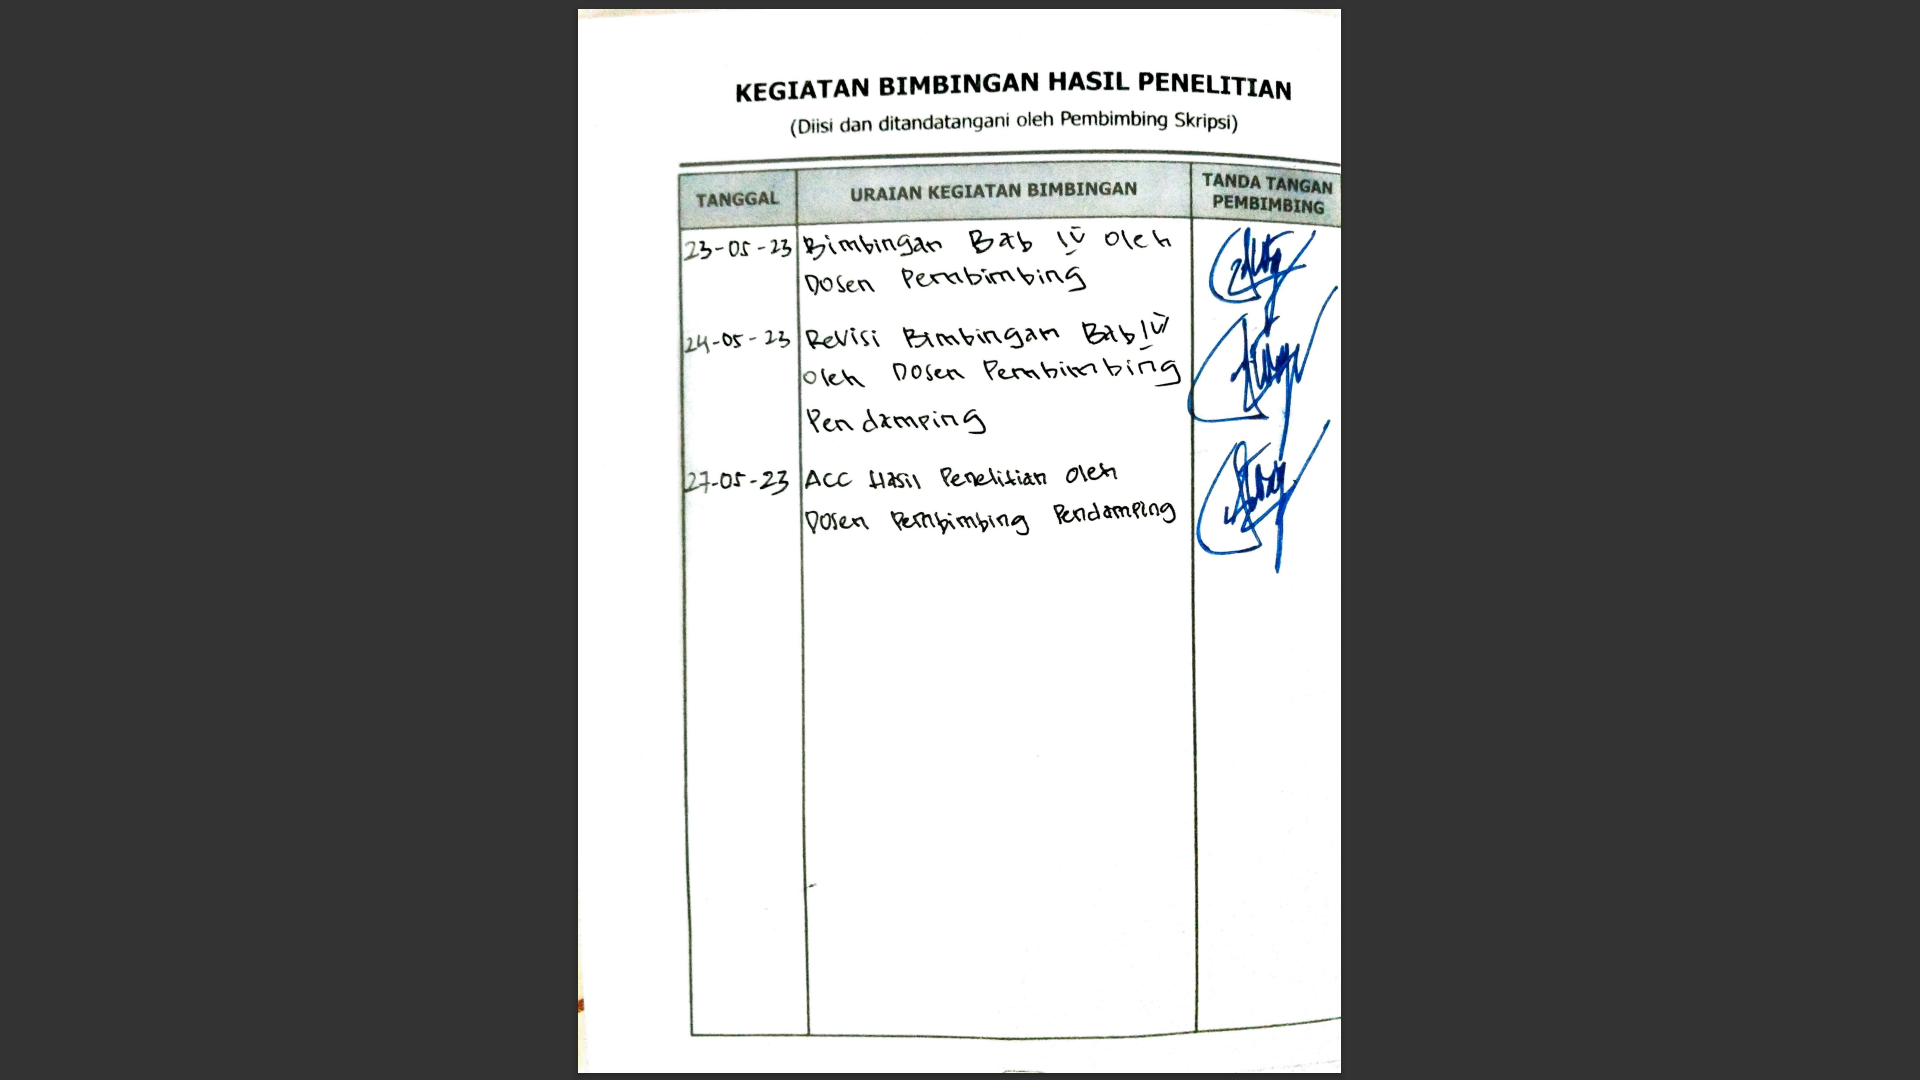 KEGIATAN BIMBINGAN HASIL PENELITIAN
(Diisi dan ditandatangani oleh Pembimbing Skripsi)
TANGGAL
URAIAN KEGIATAN BIMBINGAN
TANDA TANGAN
PEMBIMBING
23-05-23 Bimbingan Bab IV oleh
Dosen Pembimbing
24-05-23 Revisi Bimbingan Bab IV
oleh Dosen Pembimbing
Pendamping
27-05-23 ACC Hasil Penelitian oleh
Dosen Pembimbing Pendamping